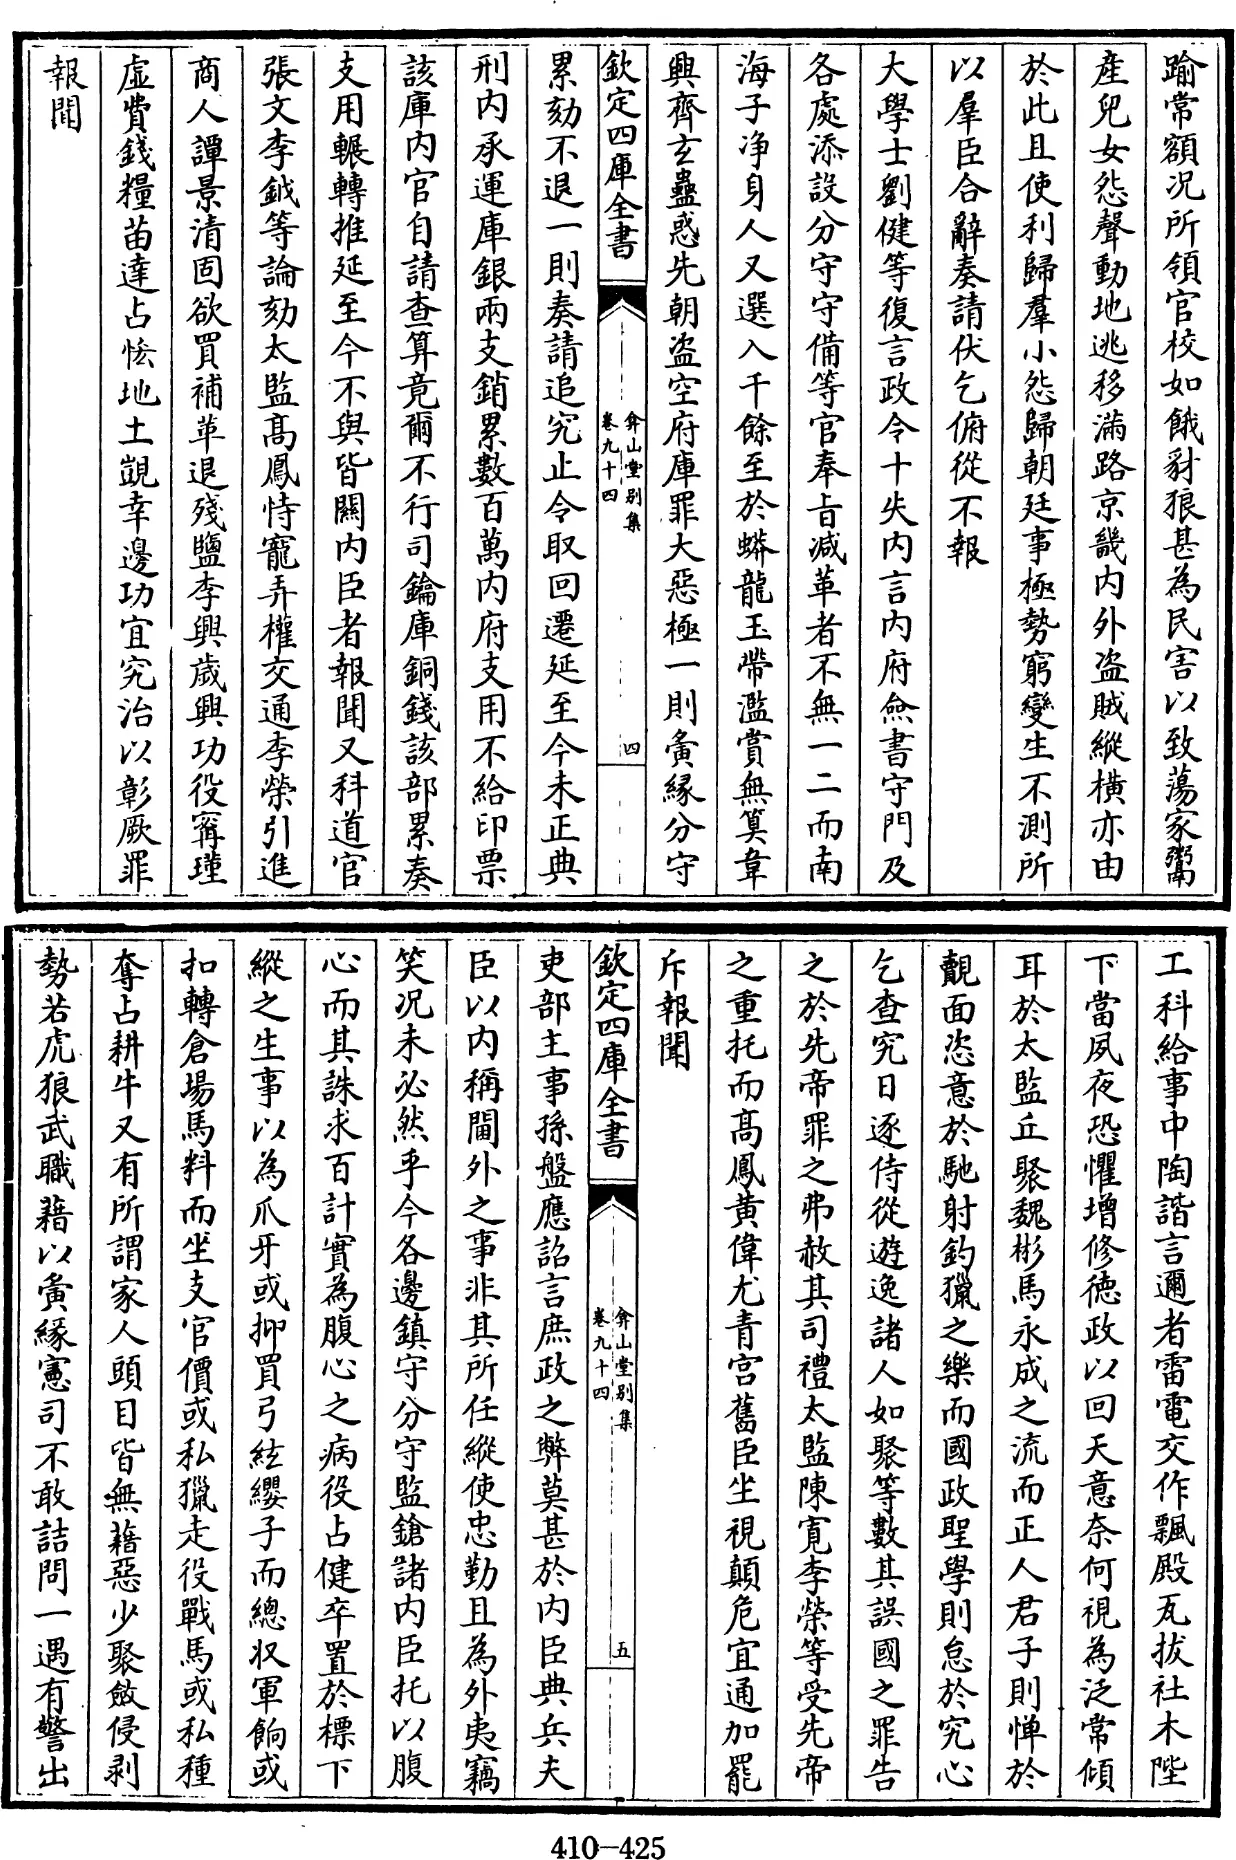 踰常額况所領官校如餓豺狼甚為民害以致蕩家鬻
産兒女怨聲動地逃移滿路京畿内外盗賊縱横亦由
於此且使利歸羣小怨歸朝廷事極勢窮變生不測所
以羣臣合辭奏請伏乞俯從不報
大學士劉健等復言政令十失内言内府僉書守門及
各處添設分守守備等官奉旨減革者不無一二而南
海子净身人又選入千餘至於蟒龍玉帶濫賞無筭韋
興齊玄蠱惑先朝盗空府庫罪大惡極一則夤縁分守
欽定四庫全書
弇山堂别集
卷九十四
四
累劾不退一則奏請追究止令取回遷延至今未正典
刑内承運庫銀兩支銷累數百萬内府支用不給印票
該庫内官自請查算竟爾不行司鑰庫銅錢該部累奏
支用輾轉推延至今不與皆闗内臣者報聞又科道官
張文李鉞等論劾太監髙鳳恃寵弄權交通李榮引進
商人譚景清固欲買補革退殘鹽李興歳興功役寗瑾
虛費錢糧苗逵占悋地土覬幸邊功宜究治以彰厥罪
報聞
工科給事中陶諧言邇者雷電交作飄殿瓦拔社木陛
下當夙夜恐懼增修徳政以回天意奈何視為泛常傾
耳於太監丘聚魏彬馬永成之流而正人君子則惮於
覿面恣意於馳射釣獵之樂而國政聖學則怠於究心
乞查究日逐侍從遊逸諸人如聚等數其誤國之罪告
之於先帝罪之弗赦其司禮太監陳寛李榮等受先帝
之重托而髙鳳黄偉尤青宫舊臣坐視顛危宜通加罷
斥報聞
欽定四庫全書
弇山堂别集
卷九十四
五
吏部主事孫盤應詔言庶政之弊莫甚於内臣典兵夫
臣以内稱閫外之事非其所任縱使忠勤且為外夷竊
笑况未必然乎今各邊鎮守分守監鎗諸内臣托以腹
心而其誅求百計實為腹心之病役占健卒置於標下
縱之生事以為爪牙或抑買弓絃纓子而總収軍餉或
扣轉倉場馬料而坐支官價或私獵走役戰馬或私種
奪占耕牛又有所謂家人頭目皆無藉惡少聚斂侵剥
勢若虎狼武職藉以夤縁憲司不敢詰問一遇有警出
410-425